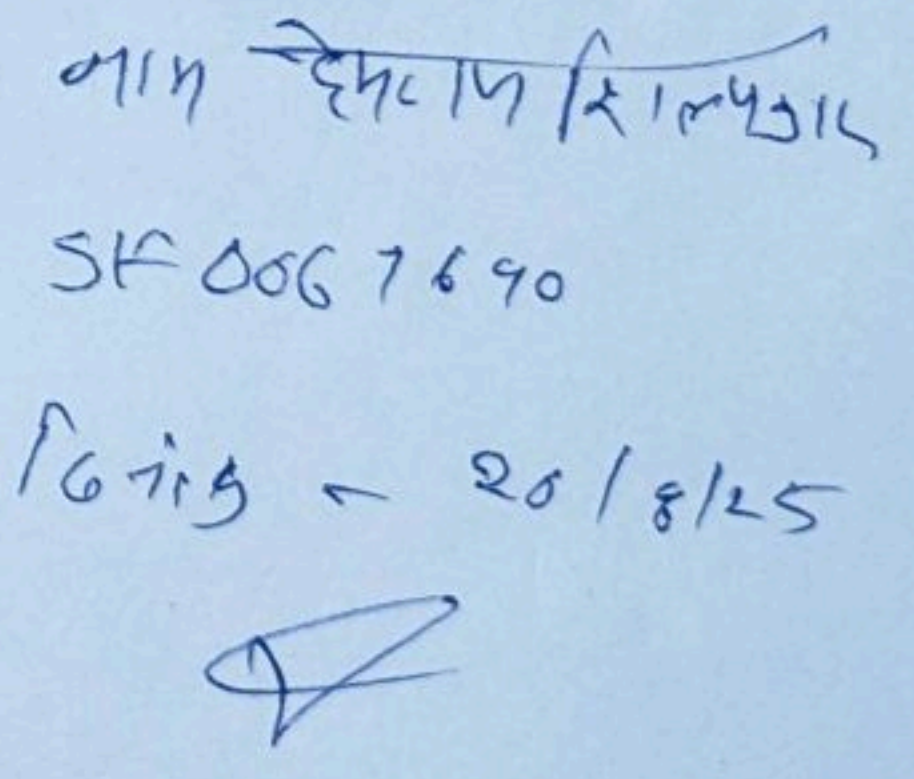 नाम हेमराम शिल्पकार
SF0067690
दिनांक - 20/8/25